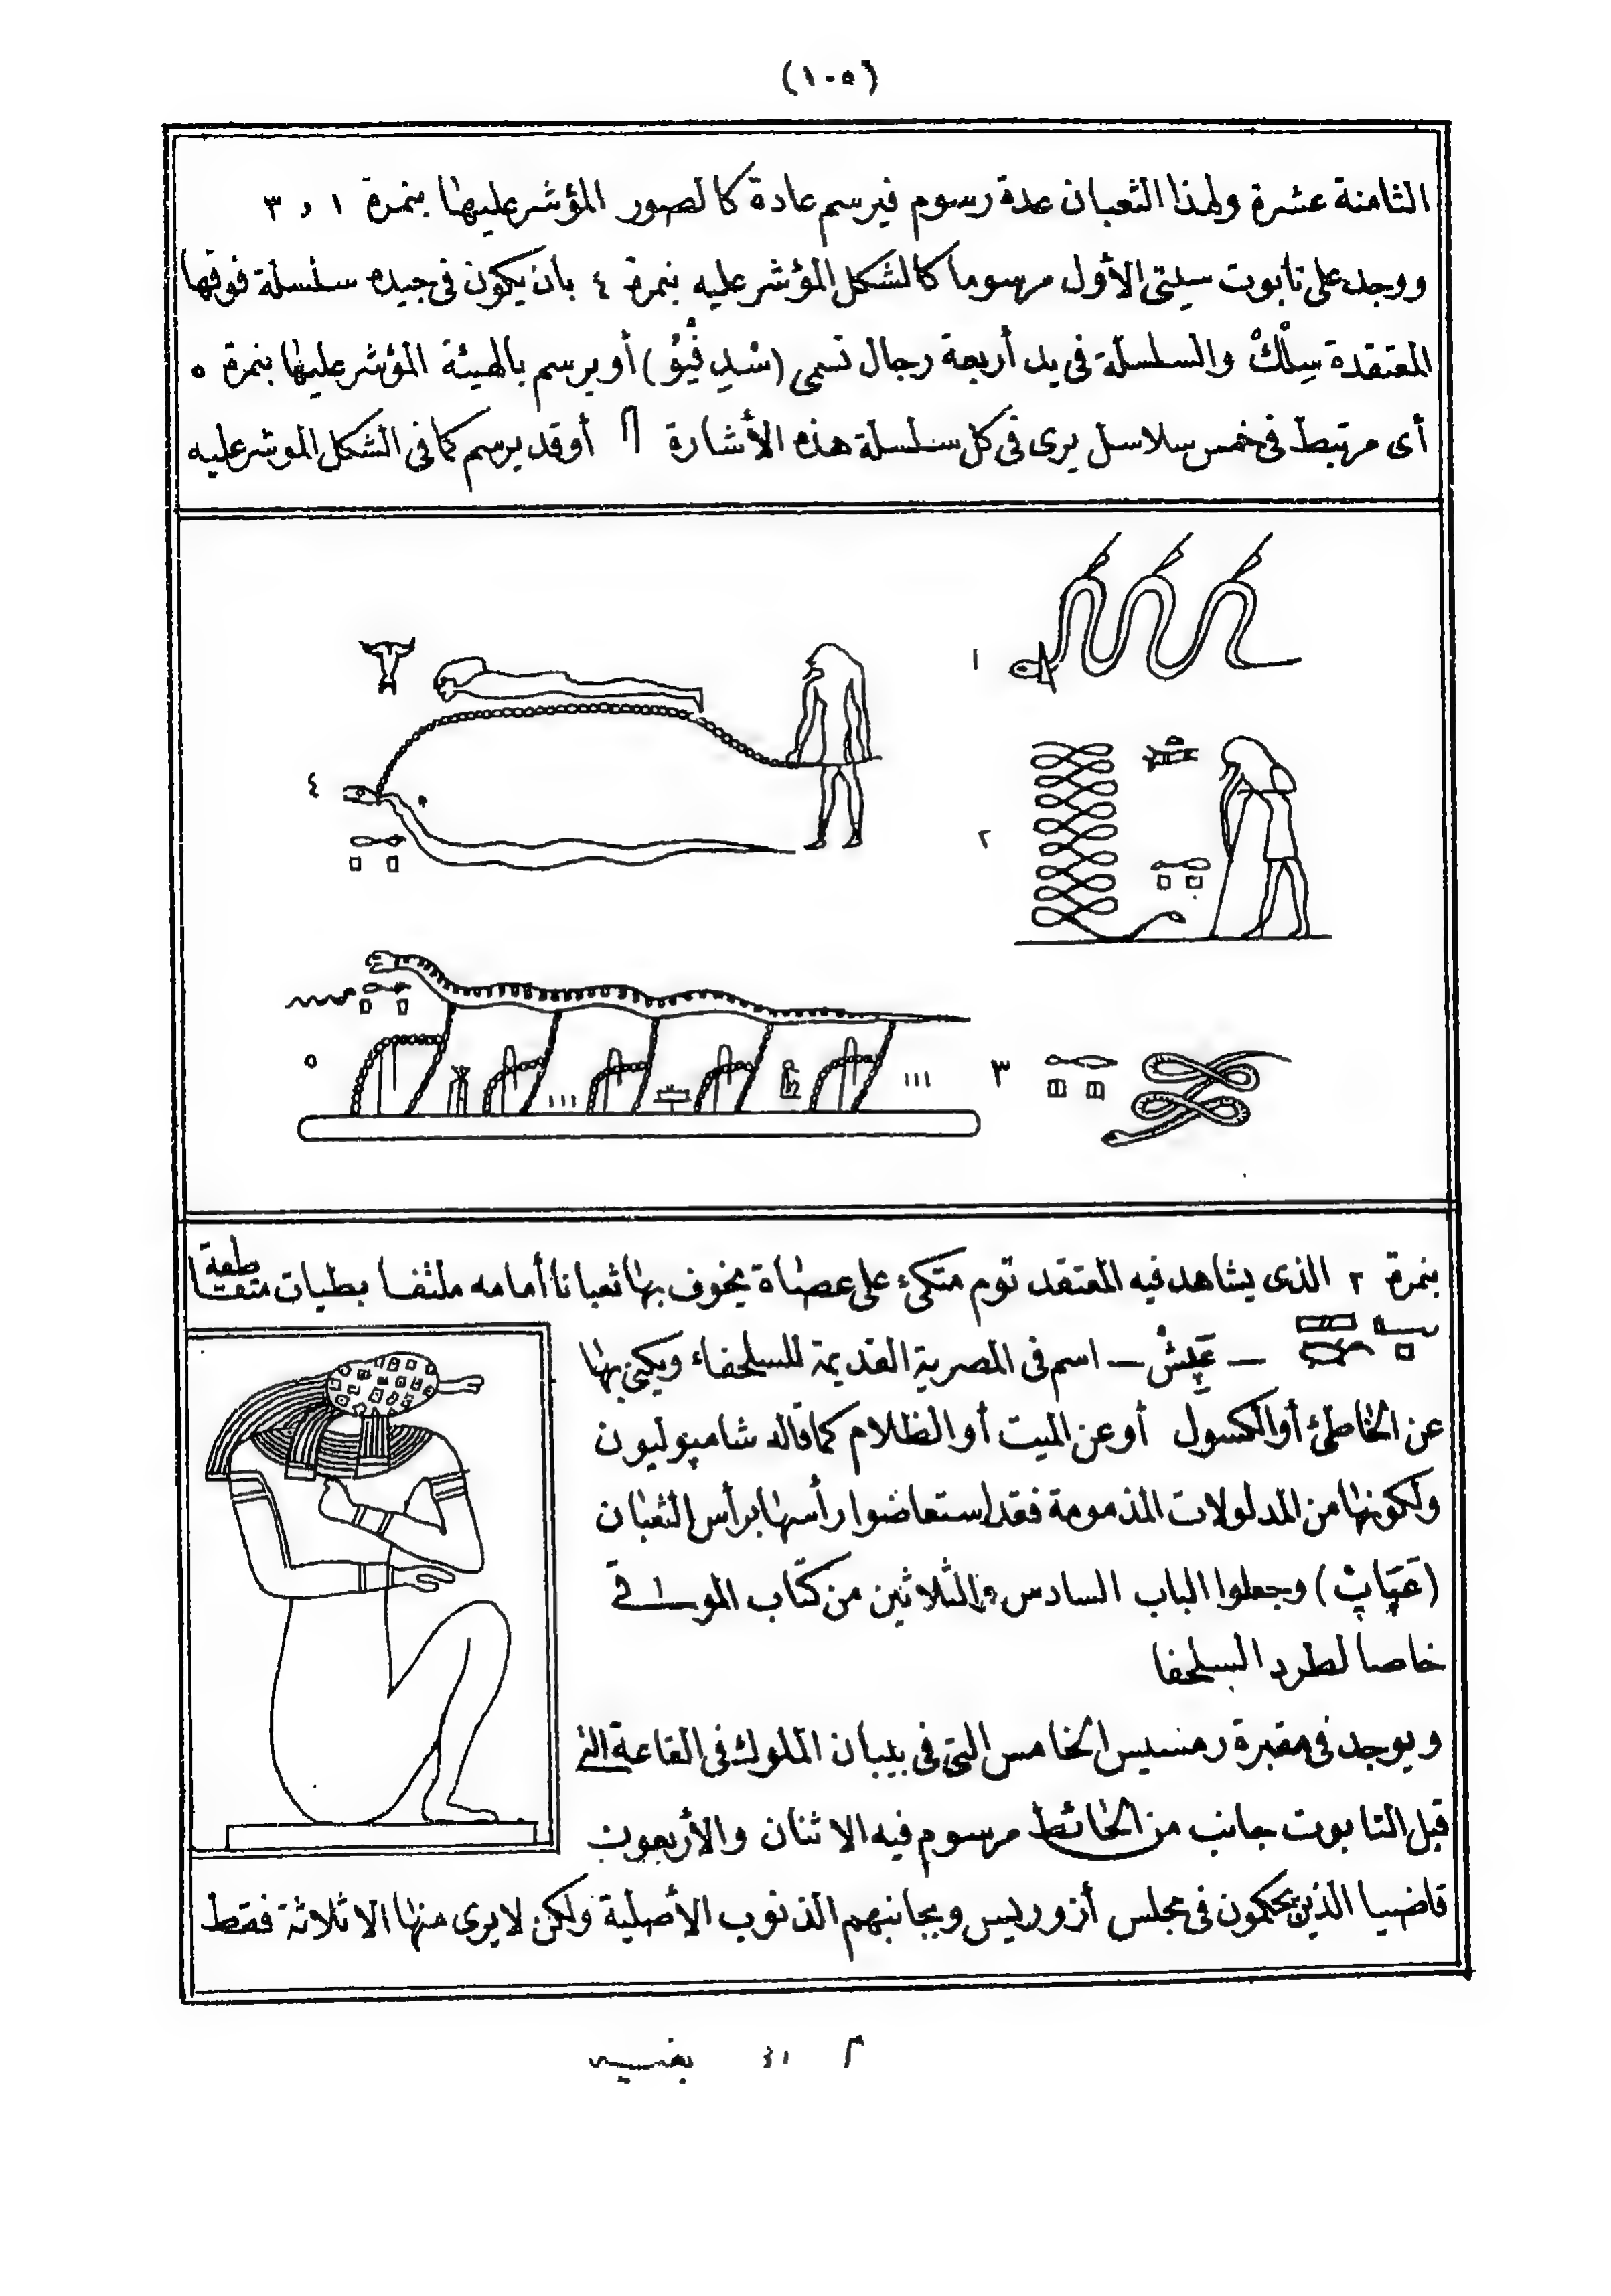 (١٠٥)
الثامنة عشرة ولهذا الثعبان عدة رسوم فيرسم عادة كالصور المؤشر عليها بنمرة ١ و ٣
ووجد على تابوت سيتى الأول مرسوما كالشكل المؤشر عليه بنمرة ٤ بأن يكون فى جيده سلسلة فوقها
المعتقدة سِلْكْ والسلسلة فى يد أربعة رجال تسمى (سْدِ فْيُو) أو يرسم بالهيئة المؤشر عليها بنمرة ٥
أى مرتبط فى خمس سلاسل يرى فى كل سلسلة هذه الأشارة أوقد يرسم كما فى الشكل الموشر عليه
١
٤
٢
٥
٣
بنمرة ٢ الذى يشاهد فيه المعتقد توم متكىء على عصاة يخوف بها ثعبانا أمامه ملتفا بطيات متقاطعة
— عَپِشْ — اسم فى المصرية القديمة للسلحفاء ويكنى بها
عن الخاطئ أو الكسول أو عن الميت أو الظلام كما قاله شامپوليون
ولكونها من المدلولات المذمومة فقد استعاضوا رأسها برأس الثعبان
(عَپَاپْ) وجعلوا الباب السادس والثلاثين من كتاب الموتى
خاصا لطرد السلحفا
ويوجد فى مقبرة رمسيس الخامس التى فى بيبان الملوك فى القاعة التى
قبل التابوت جانب من الحائط مرسوم فيه الاثنان والأربعون
قاضيا الذين يحكمون فى مجلس أزوريس وبجانبهم الذنوب الأصلية ولكن لا يرى منها الا ثلاثة فقط
م ١٤